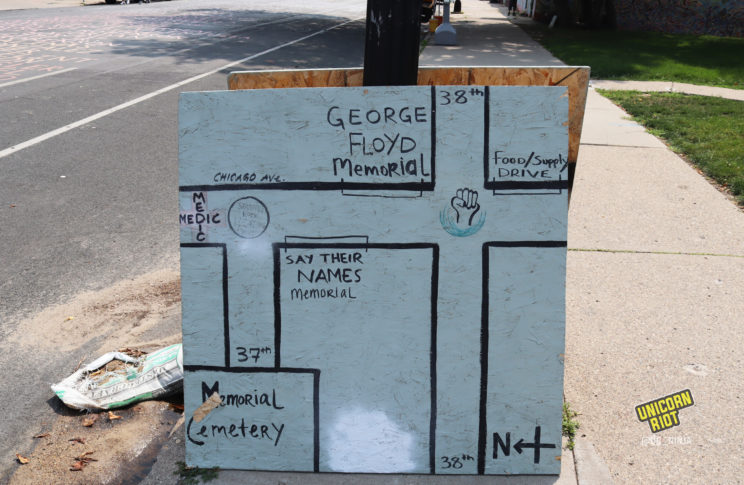 38th
GEORGE
FLOYD
Memorial
FOOD/Supply
DRIVE
CHICAGO AVE.
MEDIC
MEDIC
SAY THEIR
NAMES
Memorial
37th
Memorial
Cemetery
38th
N
UNICORN
RIOT
NINJA